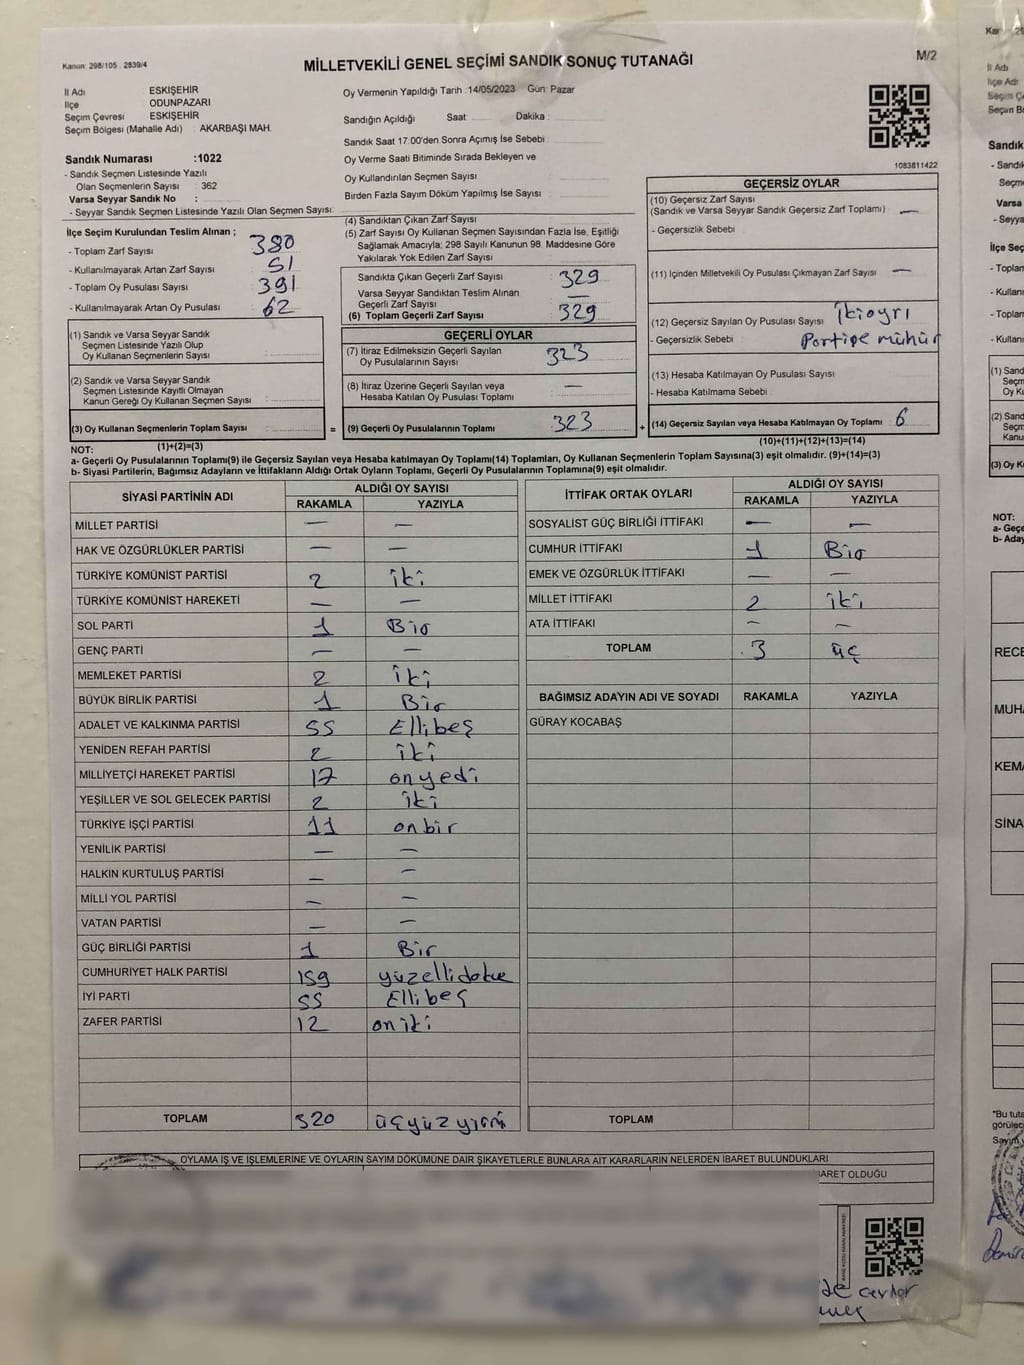 Kanun: 298/105 , 2839/4
MİLLETVEKİLİ GENEL SEÇİMİ SANDIK SONUÇ TUTANAĞI
M/2
İl Adı ESKİŞEHİR
İlçe ODUNPAZARI
Seçim Çevresi ESKİŞEHİR
Seçim Bölgesi (Mahalle Adı) : AKARBAŞI MAH.
Oy Vermenin Yapıldığı Tarih :14/05/2023 Gün: Pazar
Sandığın Açıldığı Saat: Dakika:
Sandık Saat 17:00'den Sonra Açımış İse Sebebi :
Sandık Numarası :1022
- Sandık Seçmen Listesinde Yazılı
Olan Seçmenlerin Sayısı : 362
Varsa Seyyar Sandık No :
- Seyyar Sandık Seçmen Listesinde Yazılı Olan Seçmen Sayısı:
Oy Verme Saati Bitiminde Sırada Bekleyen ve
Oy Kullandırılan Seçmen Sayısı :
Birden Fazla Sayım Döküm Yapılmış İse Sayısı :
1083811422
İlçe Seçim Kurulundan Teslim Alınan ;
- Toplam Zarf Sayısı : 380
- Kullanılmayarak Artan Zarf Sayısı : 51
- Toplam Oy Pusulası Sayısı : 391
- Kullanılmayarak Artan Oy Pusulası : 62
(1) Sandık ve Varsa Seyyar Sandık
Seçmen Listesinde Yazılı Olup
Oy Kullanan Seçmenlerin Sayısı :
(2) Sandık ve Varsa Seyyar Sandık
Seçmen Listesinde Kayıtlı Olmayan
Kanun Gereği Oy Kullanan Seçmen Sayısı :
(3) Oy Kullanan Seçmenlerin Toplam Sayısı :
(1)+(2)=(3)
(4) Sandıktan Çıkan Zarf Sayısı :
(5) Zarf Sayısı Oy Kullanan Seçmen Sayısından Fazla İse, Eşitliği
Sağlamak Amacıyla; 298 Sayılı Kanunun 98. Maddesine Göre
Yakılarak Yok Edilen Zarf Sayısı :
Sandıkta Çıkan Geçerli Zarf Sayısı : 329
Varsa Seyyar Sandıktan Teslim Alınan
Geçerli Zarf Sayısı : —
(6) Toplam Geçerli Zarf Sayısı : 329
GEÇERLİ OYLAR
(7) İtiraz Edilmeksizin Geçerli Sayılan
Oy Pusulalarının Sayısı : 323
(8) İtiraz Üzerine Geçerli Sayılan veya
Hesaba Katılan Oy Pusulası Toplamı : —
= (9) Geçerli Oy Pusulalarının Toplamı : 323
GEÇERSİZ OYLAR
(10) Geçersiz Zarf Sayısı
(Sandık ve Varsa Seyyar Sandık Geçersiz Zarf Toplamı) : —
- Geçersizlik Sebebi :
(11) İçinden Milletvekili Oy Pusulası Çıkmayan Zarf Sayısı : —
(12) Geçersiz Sayılan Oy Pusulası Sayısı : İki ayrı
- Geçersizlik Sebebi : Partipe mühür
(13) Hesaba Katılmayan Oy Pusulası Sayısı :
- Hesaba Katılmama Sebebi :
+ (14) Geçersiz Sayılan veya Hesaba Katılmayan Oy Toplamı : 6
(10)+(11)+(12)+(13)=(14)
NOT:
a- Geçerli Oy Pusulalarının Toplamı(9) ile Geçersiz Sayılan veya Hesaba katılmayan Oy Toplamı(14) Toplamları, Oy Kullanan Seçmenlerin Toplam Sayısına(3) eşit olmalıdır. (9)+(14)=(3)
b- Siyasi Partilerin, Bağımsız Adayların ve İttifakların Aldığı Ortak Oyların Toplamı, Geçerli Oy Pusulalarının Toplamına(9) eşit olmalıdır.
SİYASİ PARTİNİN ADI ALDIĞI OY SAYISI
RAKAMLA YAZIYLA
MİLLET PARTİSİ — —
HAK VE ÖZGÜRLÜKLER PARTİSİ — —
TÜRKİYE KOMÜNİST PARTİSİ 2 iki
TÜRKİYE KOMÜNİST HAREKETİ — —
SOL PARTİ 1 Bir
GENÇ PARTİ — —
MEMLEKET PARTİSİ 2 iki
BÜYÜK BİRLİK PARTİSİ 1 Bir
ADALET VE KALKINMA PARTİSİ 55 Ellibeş
YENİDEN REFAH PARTİSİ 2 iki
MİLLİYETÇİ HAREKET PARTİSİ 17 onyedi
YEŞİLLER VE SOL GELECEK PARTİSİ 2 iki
TÜRKİYE İŞÇİ PARTİSİ 11 onbir
YENİLİK PARTİSİ — —
HALKIN KURTULUŞ PARTİSİ — —
MİLLİ YOL PARTİSİ — —
VATAN PARTİSİ — —
GÜÇ BİRLİĞİ PARTİSİ 1 Bir
CUMHURİYET HALK PARTİSİ 159 yüzellidokuz
İYİ PARTİ 55 Ellibeş
ZAFER PARTİSİ 12 on iki
TOPLAM 320 üçyüz yirmi
İTTİFAK ORTAK OYLARI ALDIĞI OY SAYISI
RAKAMLA YAZIYLA
SOSYALİST GÜÇ BİRLİĞİ İTTİFAKI — —
CUMHUR İTTİFAKI 1 Bir
EMEK VE ÖZGÜRLÜK İTTİFAKI — —
MİLLET İTTİFAKI 2 iki
ATA İTTİFAKI — —
TOPLAM 3 üç
BAĞIMSIZ ADAYIN ADI VE SOYADI RAKAMLA YAZIYLA
GÜRAY KOCABAŞ
TOPLAM
OYLAMA İŞ VE İŞLEMLERİNE VE OYLARIN SAYIM DÖKÜMÜNE DAİR ŞİKAYETLERLE BUNLARA AİT KARARLARIN NELERDEN İBARET BULUNDUKLARI
BARET OLDUĞU
İl Adı
İlçe Adı
Sandık
NOT:
a- Geçe
b- Aday
RECE
MUH
KEM
SİNA
"Bu tuta
görülec
Sayım